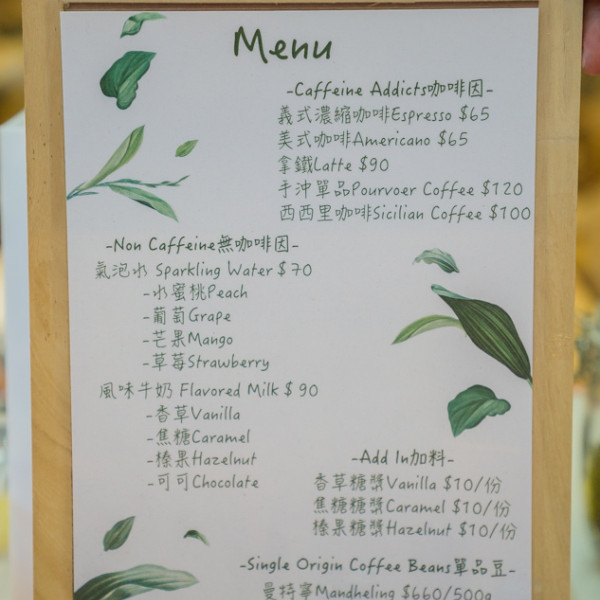 Menu
-Caffeine Addicts咖啡因-
義式濃縮咖啡Espresso $65
美式咖啡Americano $65
拿鐵Latte $90
手沖單品Pourvoer Coffee $120
西西里咖啡Sicilian Coffee $100
-Non Caffeine無咖啡因-
氣泡水 Sparkling Water $70
-水蜜桃Peach
-葡萄Grape
-芒果Mango
-草莓Strawberry
風味牛奶 Flavored Milk $90
-香草Vanilla
-焦糖Caramel
-榛果Hazelnut
-可可Chocolate
-Add In加料-
香草糖漿Vanilla $10/份
焦糖糖漿Caramel $10/份
榛果糖漿Hazelnut $10/份
-Single Origin Coffee Beans單品豆-
曼特寧Mandheling $660/500g